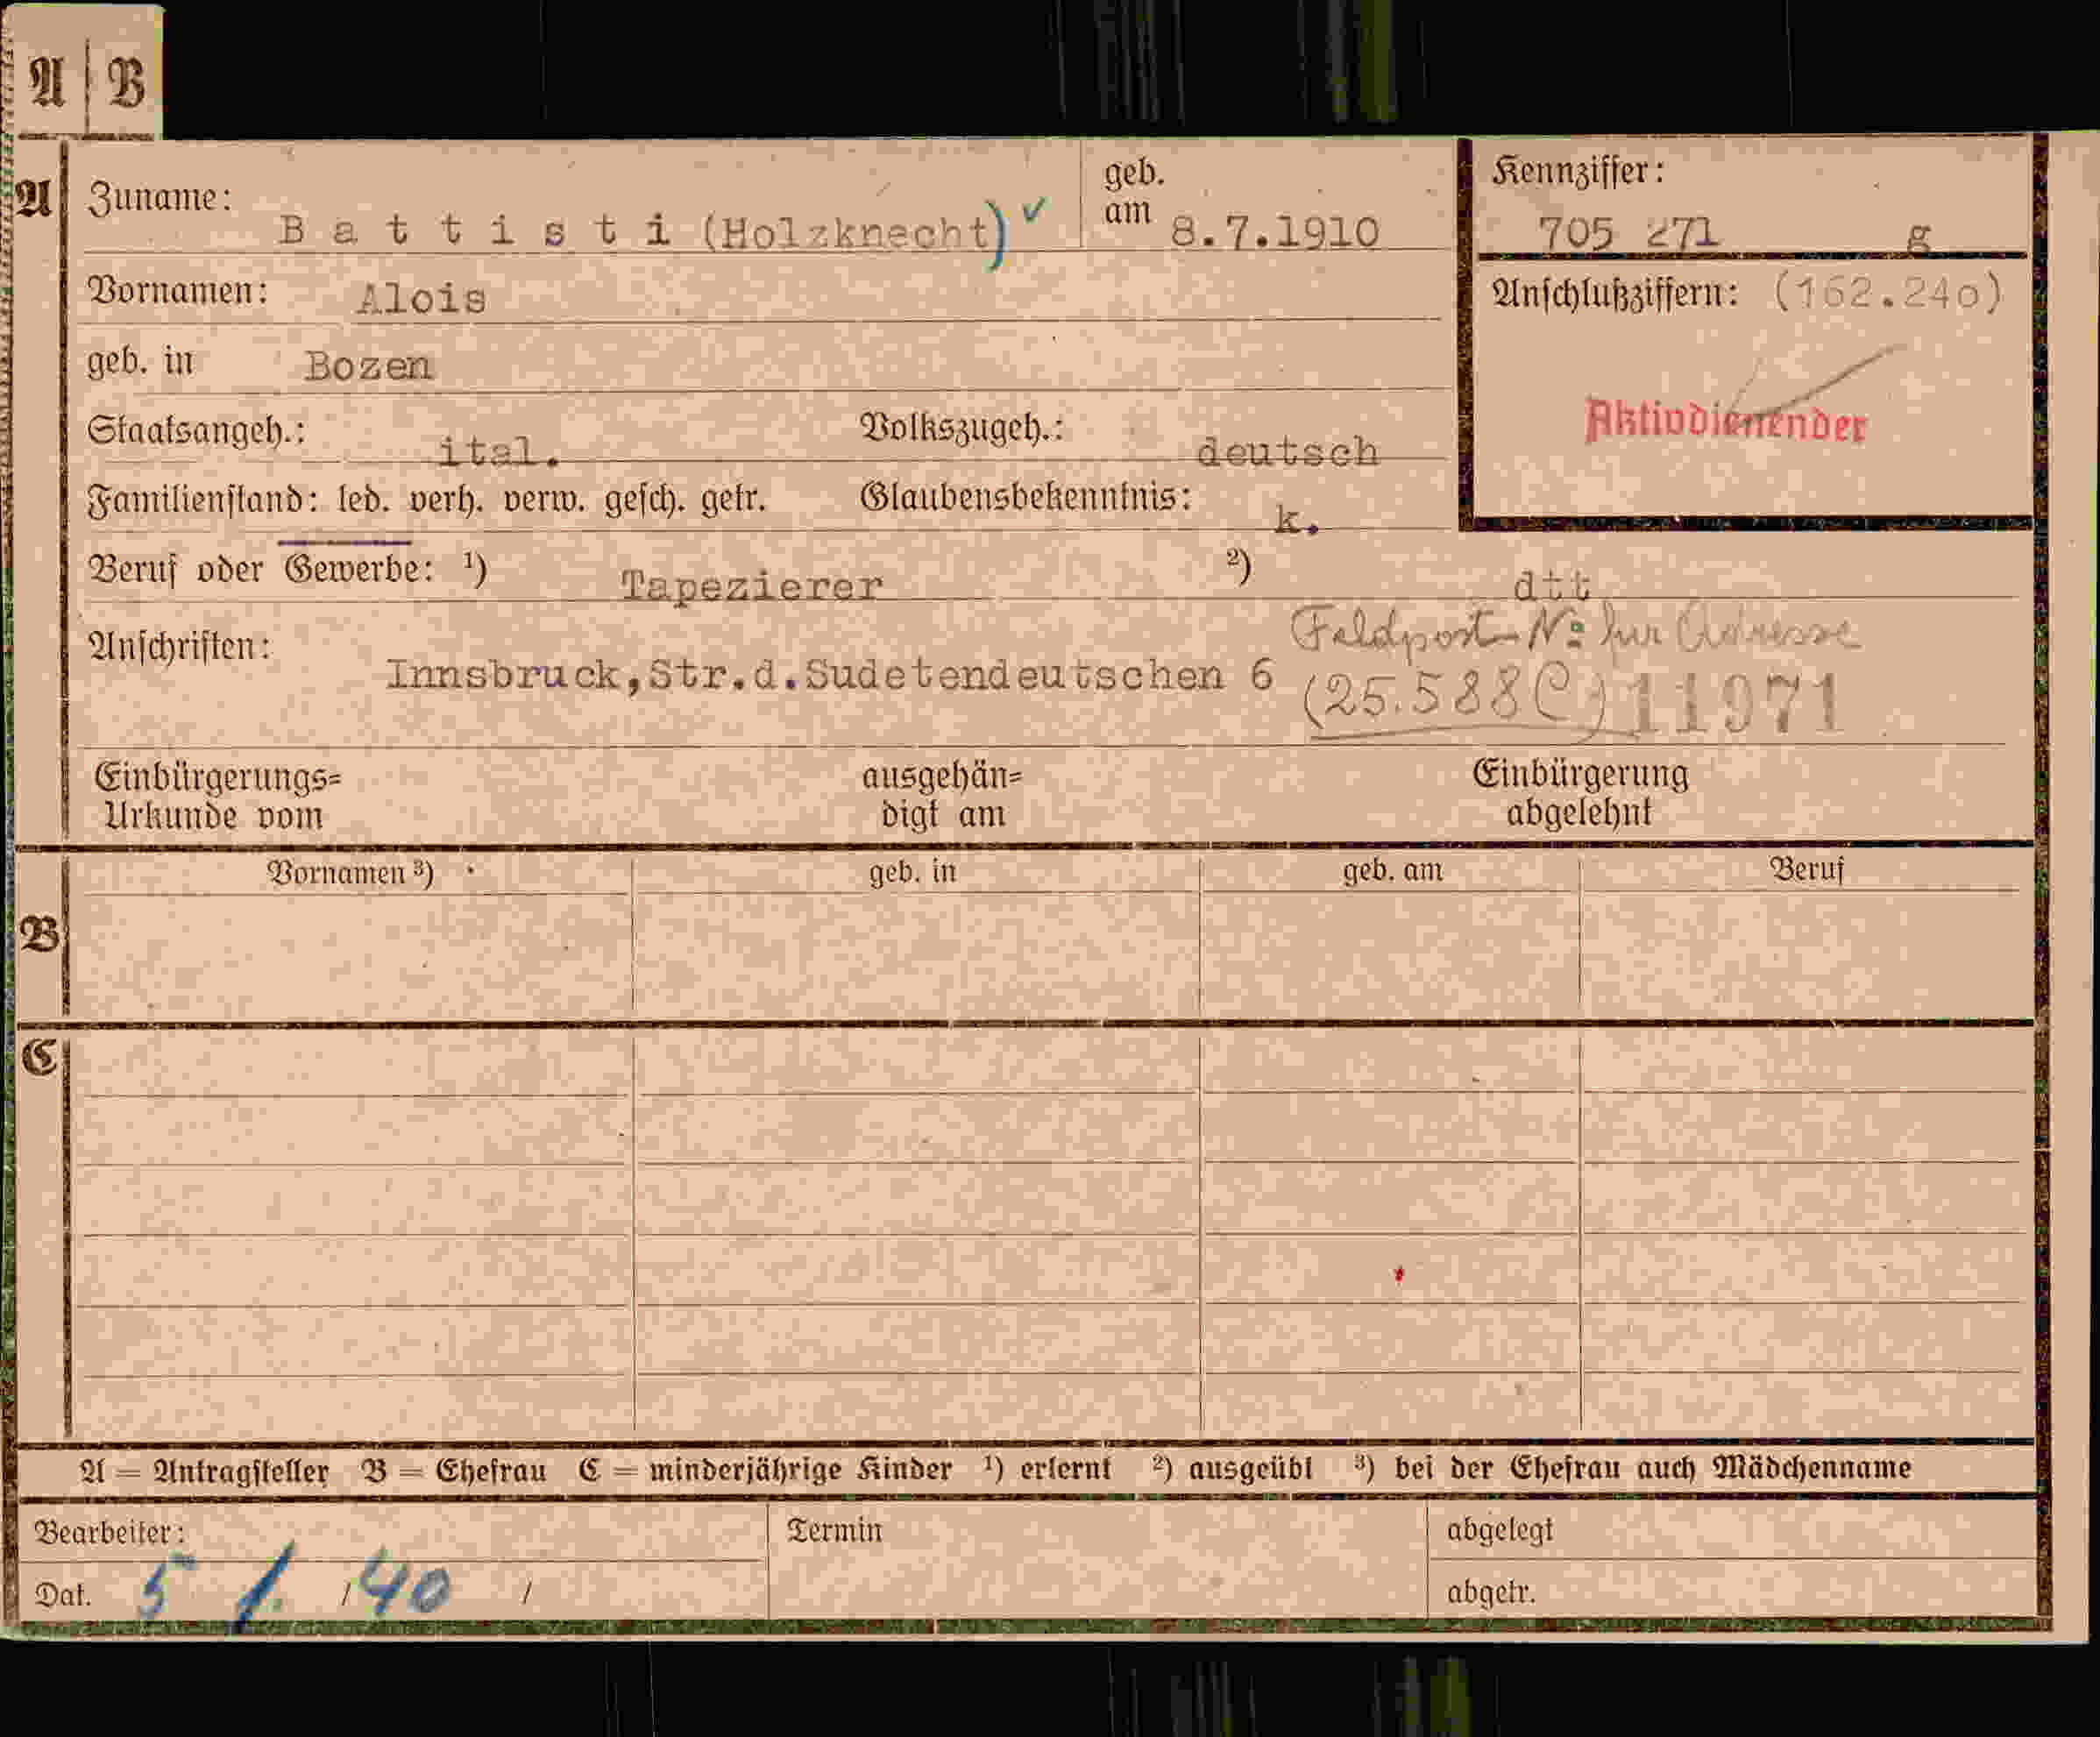 A | B
A
Zuname: B a t t i s t i (Holzknecht) ✓ geb. am 8.7.1910
Kennziffer: 705 271 g
Vornamen: Alois
Anschlußziffern: (162.240)
geb. in Bozen
Aktivdienender
Staatsangeh.: ital. Volkszugeh.: deutsch
Familienstand: led. verh. verw. gesch. getr. Glaubensbekenntnis: k.
Beruf oder Gewerbe: ¹) Tapezierer ²) dtt
Feldpost Nº für Adresse
Anschriften: Innsbruck,Str.d.Sudetendeutschen 6 (25.588 C) 11971
Einbürgerungs= ausgehän= Einbürgerung
Urkunde vom digt am abgelehnt
B
Vornamen ³) geb. in geb. am Beruf
C
A = Antragsteller B = Ehefrau C = minderjährige Kinder ¹) erlernt ²) ausgeübt ³) bei der Ehefrau auch Mädchenname
Bearbeiter: Termin abgelegt
Dat. 5 /. / 40 / abgetr.